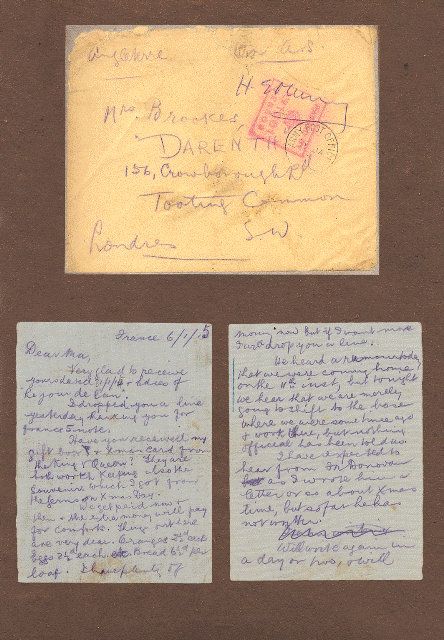 Angleterre
On A.S.
H. E.
Mrs. Brookes,
"DARENTH"
156, Crowborough Rd
Tooting Common
S.W.
Londres
ARMY POST OFFICE
France 6/1/15
Dear Ma,
Very glad to receive
yours dated 1/1/15 & adieu of
I dropped you a line
yesterday thanking you for
5 note.
Have you received my
gift box & Xmas card from
the King & Queen? They are
worth keeping also the
souvenirs which I got from
the Germans on Xmas Day.
We get paid now &
then & the extra money will pay
for comforts. Things out here
are very dear. Oranges 2½d each
Eggs 2½d each Bread 6½d per
loaf. I have plenty of
money now but if I want more
I will drop you a line.
We heard a rumour today
that we were coming home
on the 11th inst, but tonight
we hear that we are merely
going to shift to the base
where we were some time ago
& work there, but nothing
official has been told us.
I have expected to
hear from Mr Donovan
as I wrote him a
letter or so about Xmas
time, but so far he has
not written.
Will write again in
a day or two, & will